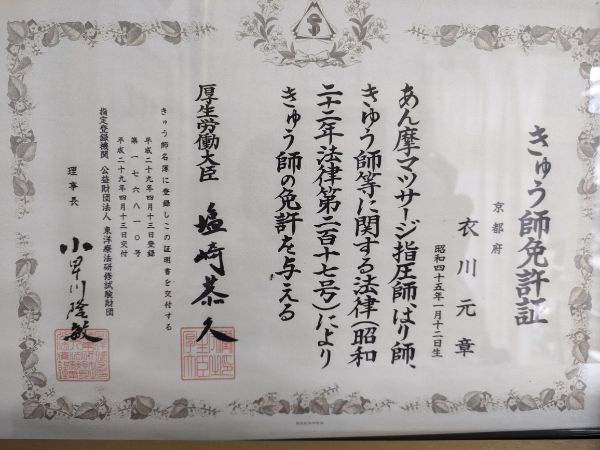 きゅう師免許証
京都府
衣川元章
昭和四十五年一月十二日生
あん摩マツサージ指圧師、はり師、
きゆう師等に関する法律(昭和
二十二年法律第二百十七号)により
きゅう師の免許を与える
厚生労働大臣 塩崎恭久
きゅう師名簿に登録しこの証明書を交付する
平成二十九年四月十三日登録
第一七六八一〇号
平成二十九年四月十三日交付
指定登録機関 公益財団法人 東洋療法研修試験財団
理事長 小早川隆敏